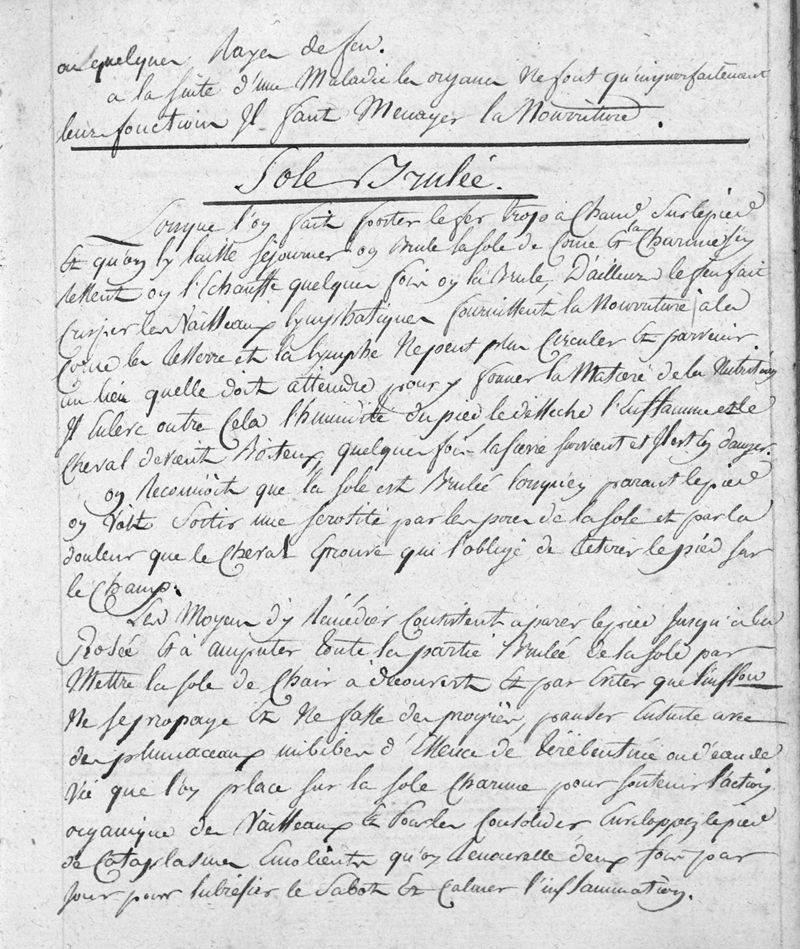 ou quelques Rayes de feu.
a la suite d'une Maladie les organes ne font qu'imparfaitement
leurs fonctions Il faut Menager la Nourriture.
Sole Brulée.
Lorsque l'on fait porter le fer trop a Chaud Sur le pied
Et qu'on ly laisse sejourner on Brule la sole de Corne Et la Charnue
on l'Echauffe quelques fois on la Brule D'ailleurs le feu fait
Crisper les Vaisseaux lymphatiques fournissent la Nourriture a la
Corne les resserre et la lymphe Ne peut plus Circuler Et parvenir
au lieu quelle doit attendre pour y former la Matiere de la Nutrition
Il Enleve outre Cela l'humidité du pied le desseche l'Enflamme et le
Cheval devient Boiteux quelques fois la fievre survient et Il est En danger.
on Reconnoit que la sole est Brulée lorsqu'en parant le pied
on Voit Sortir une serosité par les pores de la sole et par la
douleur que le Cheval Eprouve qui l'oblige de retirer le pied sur
le Champ.
Les Moyens d'y Remédier Consistent a parer le pied Jusqu'a la
Rosée Et à amputer toute la partie Brulée de la sole par
Mettre la sole de Chair à decouvert Et par Eviter que l'inflon
Ne se propage Et Ne fasse des progrès, panser Ensuite avec
des plumaceaux imbibés d'Essence de térébentine ou d'eau de
Vie que l'on place sur la sole Charnue pour soutenir l'action
organique des Vaisseaux Et pour les Consolider Enveloppez le pied
de Cataplasmes Emolients qu'on renouvelle deux fois par
Jour pour lubréfier le Sabot Et Calmer l'inflammation.